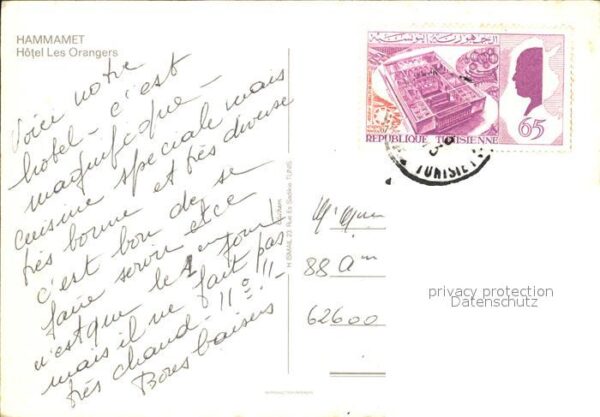 HAMMAMET
Hôtel Les Orangers
Voici notre
hotel - c'est
magnifique -
cuisine speciale mais
très bonne et très diverse
c'est bon de se
faire servir et ce
n'est que le 1er jour
mais il ne fait pas
très chaud - 11° !!
Bons baisers
H. ISMAIL 23 Rue Es Sadikia TUNIS
الجمهورية التونسية
1968
65
REPUBLIQUE TUNISIENNE
TUNISIE
88
62600
privacy protection
Datenschutz